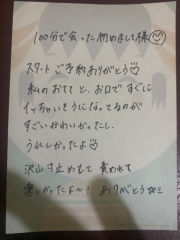 100分で会った初めまして様
スタートご予約ありがとう♡
私のおててと、お口ですぐに
イッちゃいそうになってるのが
すごいかわいかったし、
うれしかったよ♡
沢山寸止めもて責われて
楽しかったよ〜! ありがとう☆ミ